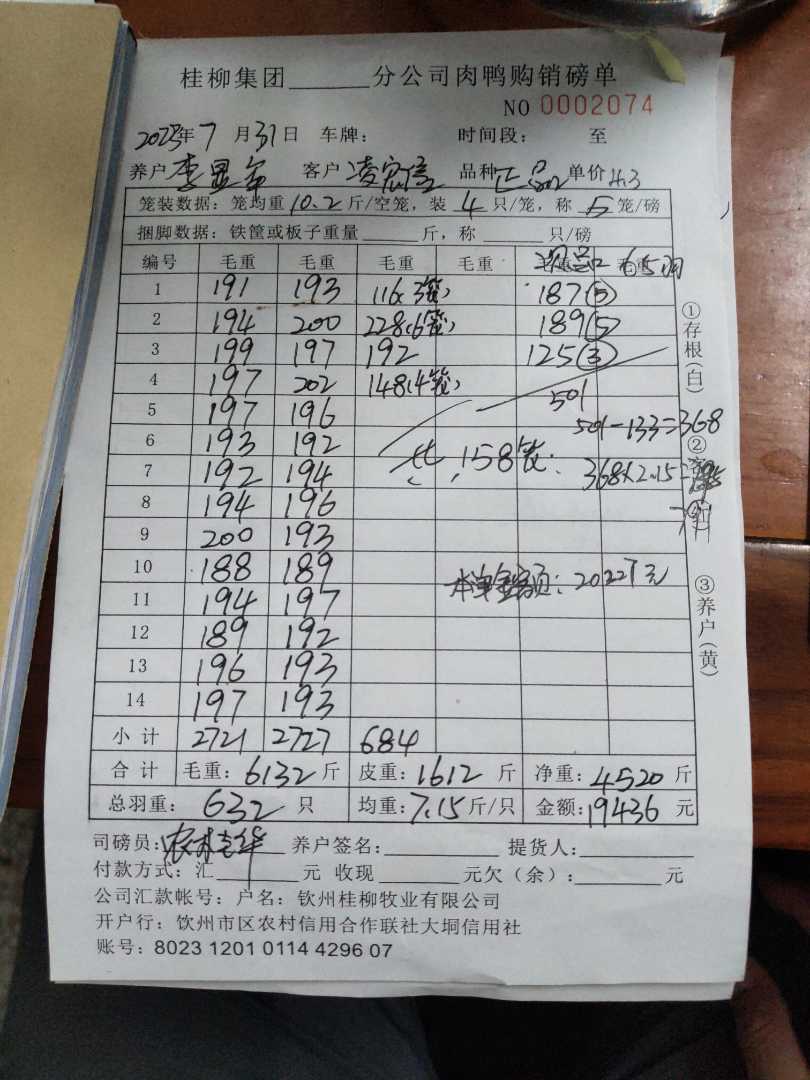 桂柳集团______分公司肉鸭购销磅单
NO 0002074
2023年7月31日 车牌: 时间段: 至
养户 李显年 客户 凌宏信 品种 正品 单价 4.3
笼装数据: 笼均重 10.2 斤/空笼, 装 4 只/笼, 称 5 笼/磅
捆脚数据: 铁筐或板子重量______斤, 称______只/磅
编号 毛重 毛重 毛重 毛重
1 191 193 116(3笼) 187(5)
2 194 200 228(6笼) 189(5)
3 199 197 192 125(3)
4 197 202 148(4笼) 501
5 197 196 501-133=368
6 193 192 共158笼.
7 192 194 368×2.15=
8 194 196
9 200 193
10 188 189 本单金额: 20227元
11 194 197
12 189 192
13 196 193
14 197 193
小计 2721 2727 684
合计 毛重: 6132 斤 皮重: 1612 斤 净重: 4520 斤
总羽重: 632 只 均重: 7.15 斤/只 金额: 19436 元
司磅员: 养户签名: 提货人:
付款方式: 汇______元 收现______元欠(余): ______元
公司汇款帐号: 户名: 钦州桂柳牧业有限公司
开户行: 饮州市区农村信用合作联社大垌信用社
账号: 8023 1201 0114 4296 07
①存根(白)
②客
③养户(黄)